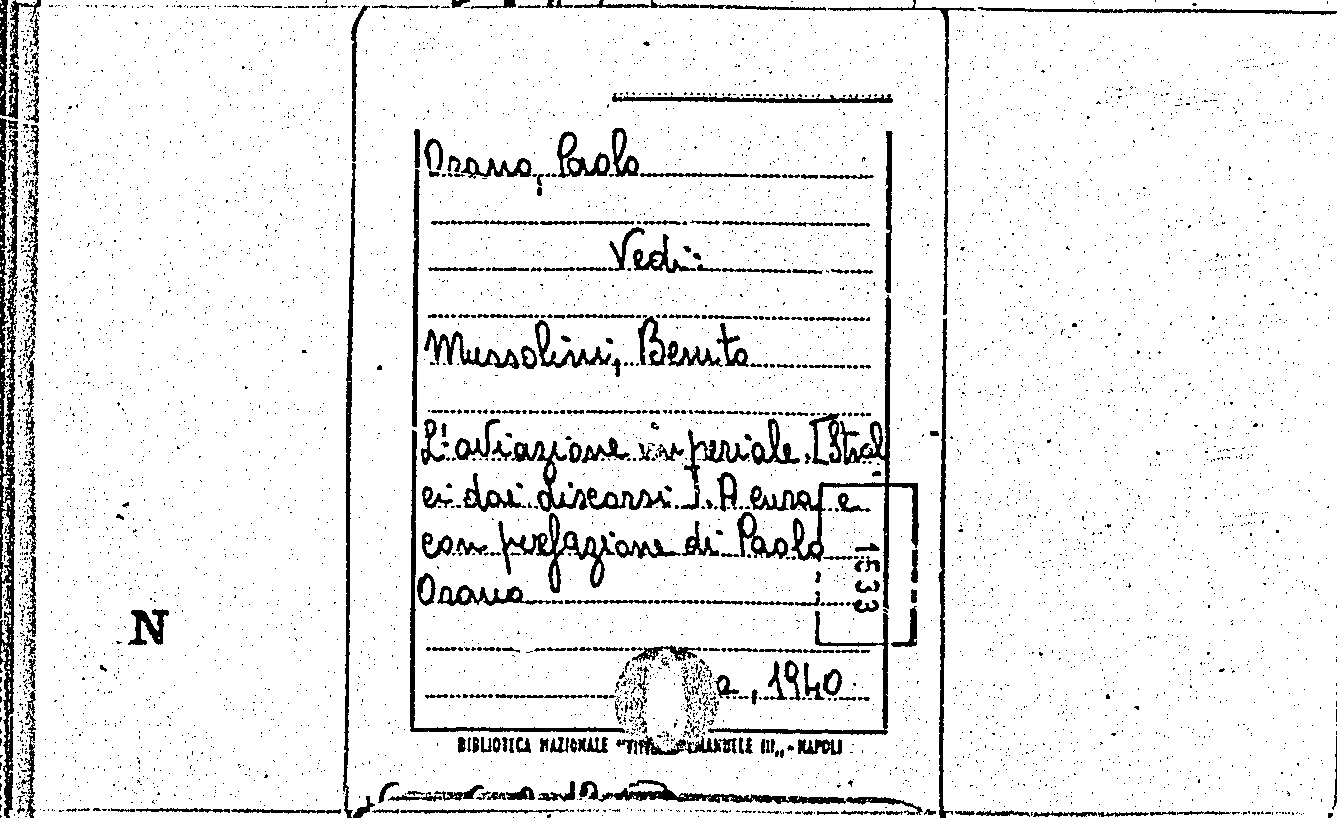 Orano, Paolo
Vedi:
Mussolini, Benito
L'aviazione imperiale. [Stral
ci dai discorsi]. A cura e
con prefazione di Paolo
Orano
1533
N
, 1940
BIBLIOTECA NAZIONALE "VITTORIO EMANUELE III„ - NAPOLI